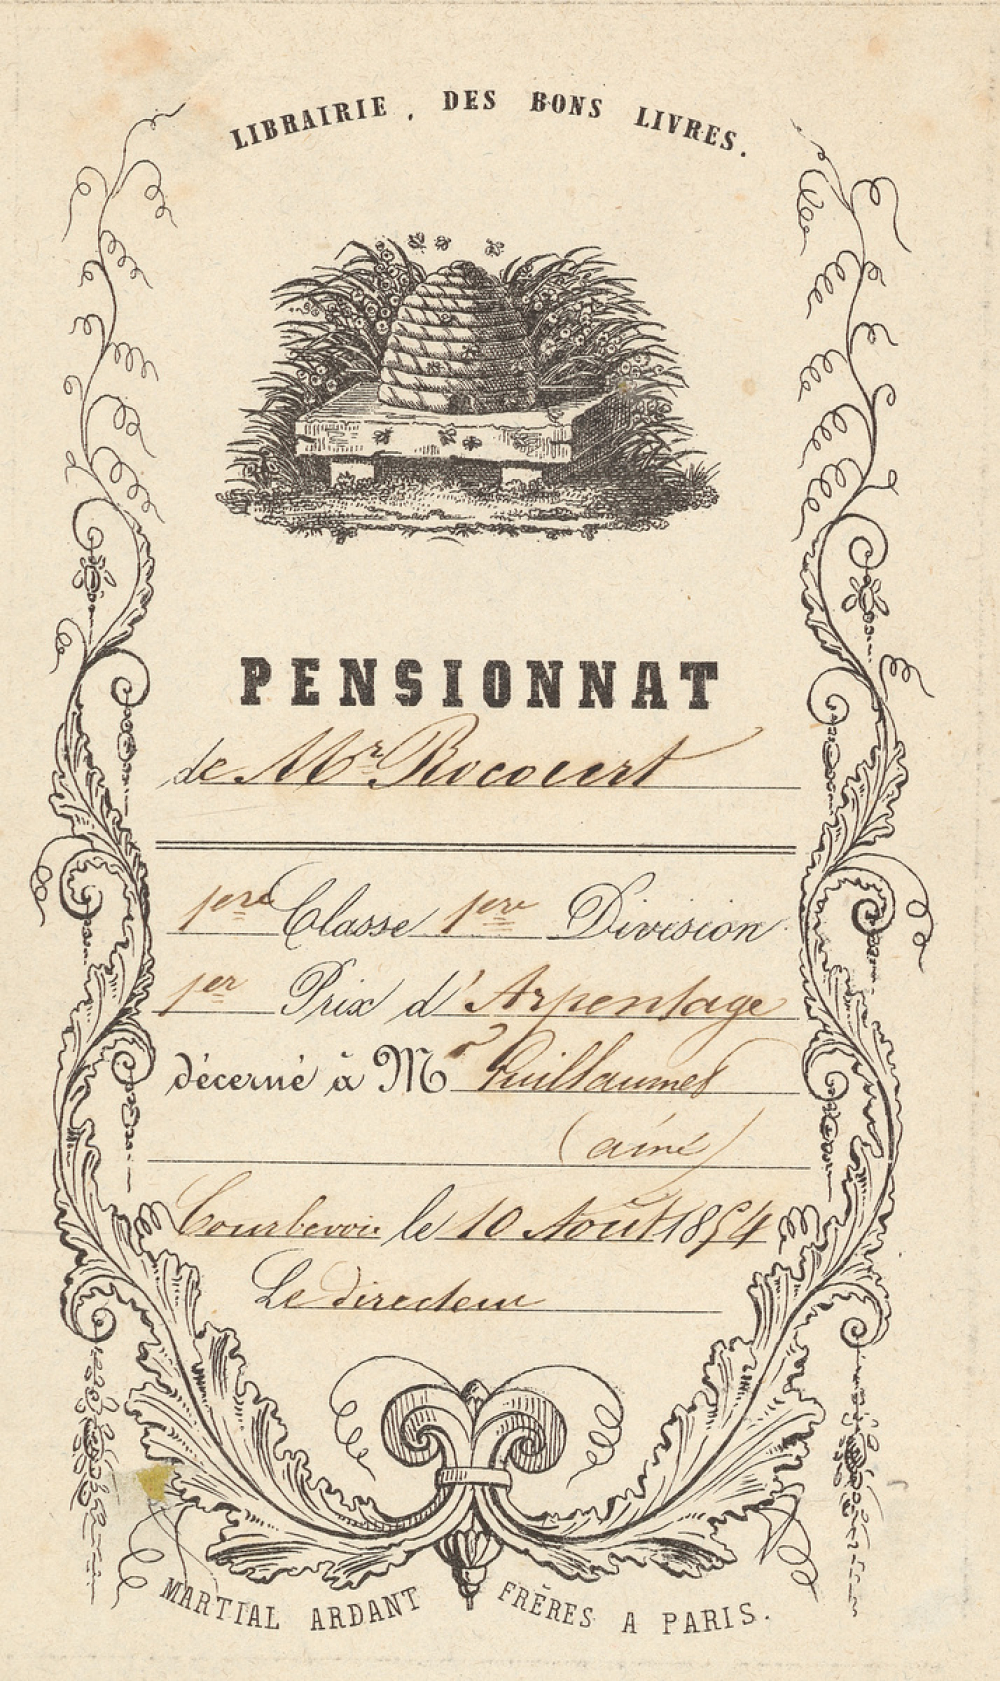 LIBRAIRIE. DES BONS LIVRES.
PENSIONNAT
de Mr Rocourt
1ere Classe 1ere Division
1er Prix d'Arpentage
décerné à Mr Guillaumet
(ainé)
Courbevoie le 10 Août 1854
Le directeur
MARTIAL ARDANT FRÈRES A PARIS.